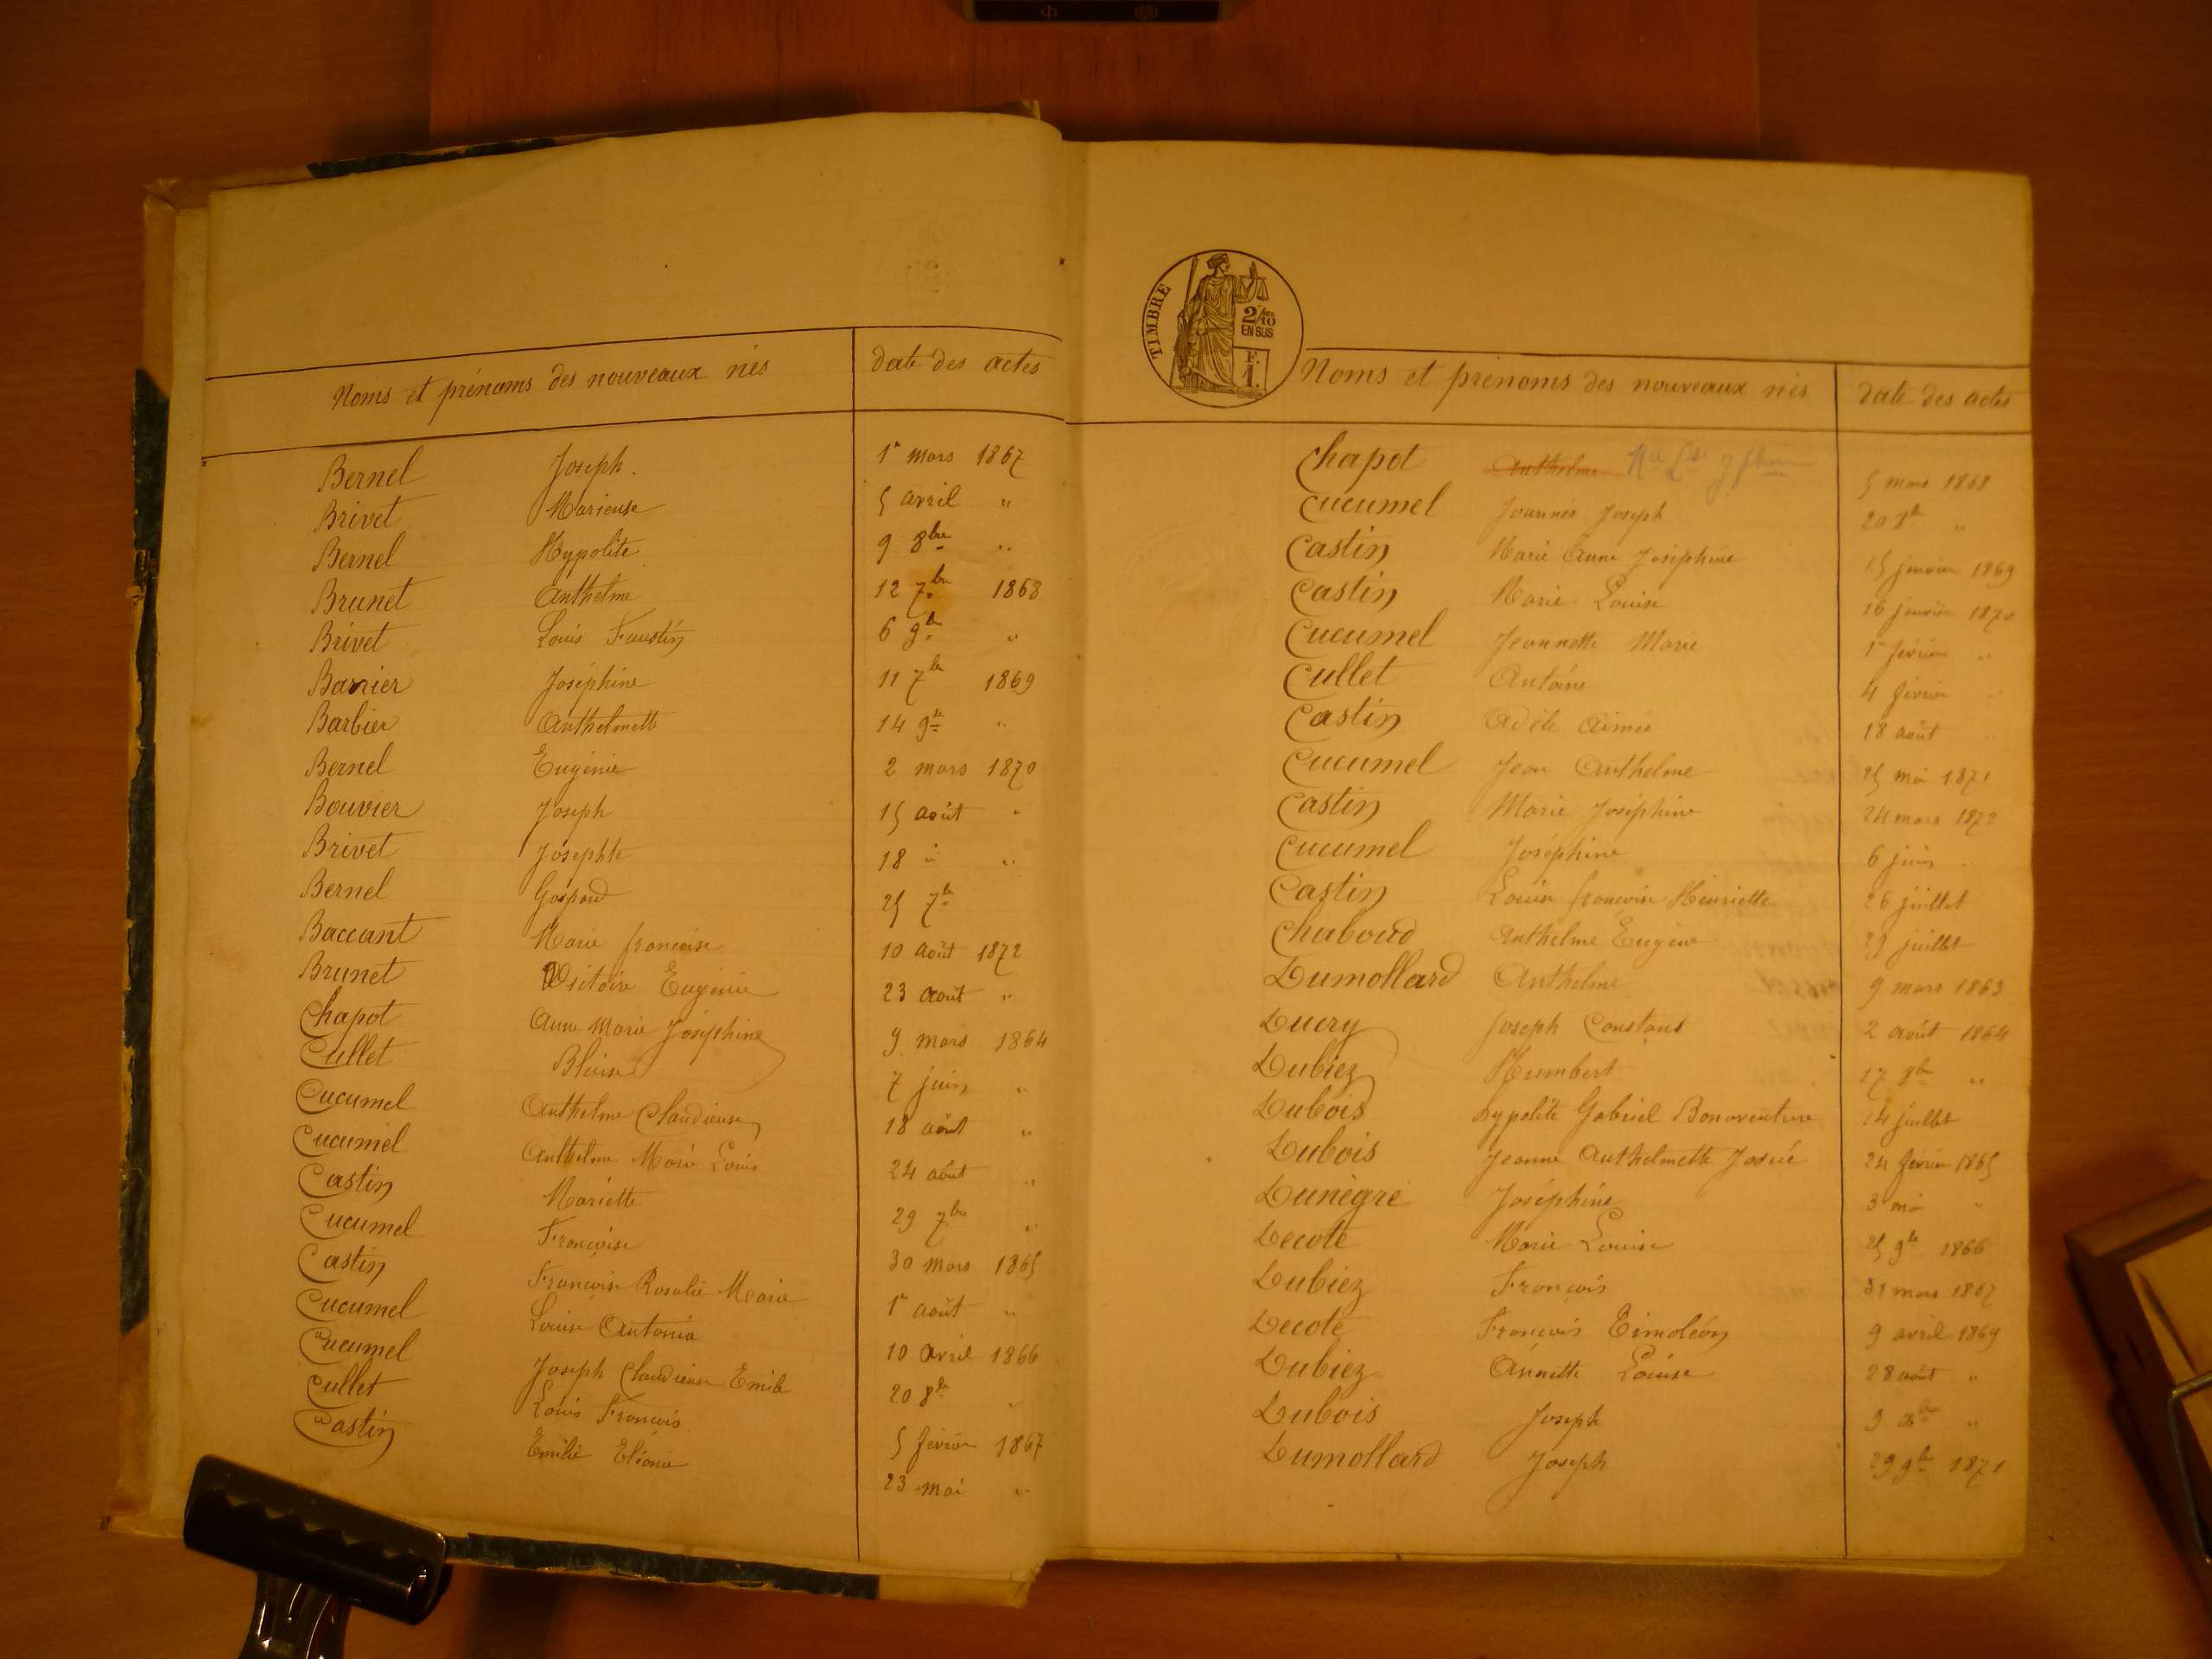 Noms et prénoms des nouveaux nés date des actes
Bernel Joseph. 1r mars 1867
Brivet Marieuse 5 avril "
Bernel Hypolite 9 8bre "
Brunet Anthelme 12 7bre 1868
Brivet Louis Faustin 6 9bre "
Barrier Joséphine 11 7bre 1869
Barbier Anthelmette 14 9bre "
Bernel Eugénie 2 mars 1870
Bouvier Joseph 15 août "
Brivet Josephte 18 " "
Bernel Gaspard 25 7bre
Baccant Marie françoise 10 août 1872
Brunet Victoire Eugénie 23 août "
Chapot Anne Marie Joséphine 9 mars 1864
Cullet Blaise 7 juin "
Cucumel Anthelme Claudieuse 18 août "
Cucumel Anthelme Marie Louis 24 août "
Castin Mariette 29 7bre "
Cucumel Françoise 30 mars 1865
Castin Françoise Rosalie Marie 1r août "
Cucumel Louise Antonia 10 avril 1866
Cucumel Joseph Claudieuse Emile 20 8bre "
Cullet Louis François 5 février 1867
Castin Emilie Eléonie 23 mai "
TIMBRE
2/10
EN SUS
F.
1.
Noms et prénoms des nouveaux nés date des actes
Chapot Anthelme 5 mars 1868
Cucumel Joannés Joseph 20 8bre "
Castin Marie Anne Joséphine 15 janvier 1869
Castin Marie Louise 16 janvier 1870
Cucumel Jeannette Marie 1r février "
Cullet Antoine 4 février "
Castin Adèle Aimée 18 août "
Cucumel Jean Anthelme 25 mai 1871
Castin Marie Joséphine 24 mars 1872
Cucumel Joséphine 6 juin "
Castin Louise françoise Henriette 26 juillet
Chaboud Anthelme Eugène 29 juillet
Dumollard Anthelme 9 mars 1863
Ducry Joseph Constant 2 août 1864
Dubiez Humbert 17 8bre "
Dubois hypolite Gabriel Bonaventure 14 juillet
Dubois Jeanne Anthelmette Josué 24 février 1865
Dunègre Joséphine 3 mai "
Decote Marie Louise 25 9bre 1866
Dubiez François 31 mars 1867
Decote François Timoléon 9 avril 1869
Dubiez Annette Louise 28 août "
Dubois Joseph 9 xbre "
Dumollard Joseph 29 9bre 1871